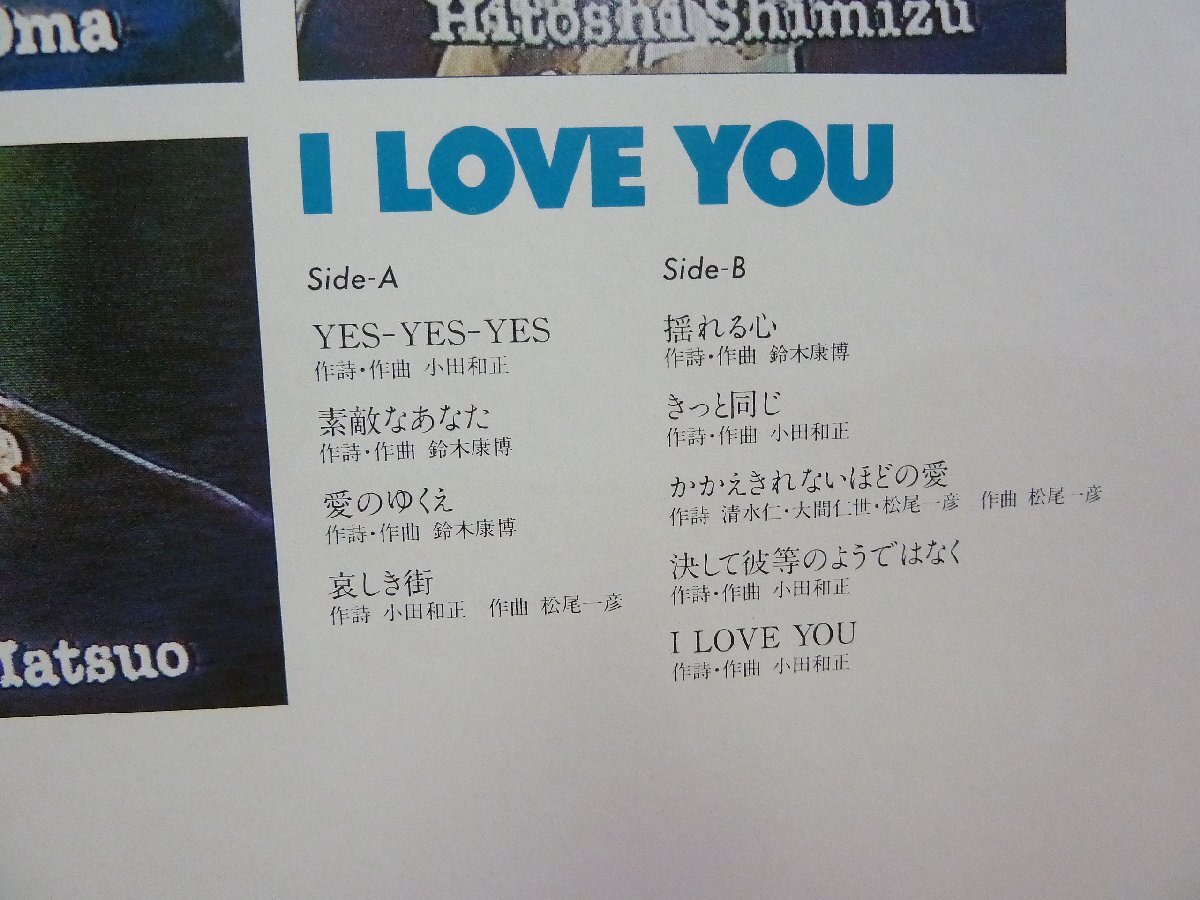 Oma
Hitoshi Shimizu
Matsuo
I LOVE YOU
Side-A
YES-YES-YES
作詩・作曲 小田和正
素敵なあなた
作詩・作曲 鈴木康博
愛のゆくえ
作詩・作曲 鈴木康博
哀しき街
作詩 小田和正 作曲 松尾一彦
Side-B
揺れる心
作詩・作曲 鈴木康博
きっと同じ
作詩・作曲 小田和正
かかえきれないほどの愛
作詩 清水仁・大間仁世・松尾一彦 作曲 松尾一彦
決して彼等のようではなく
作詩・作曲 小田和正
I LOVE YOU
作詩・作曲 小田和正